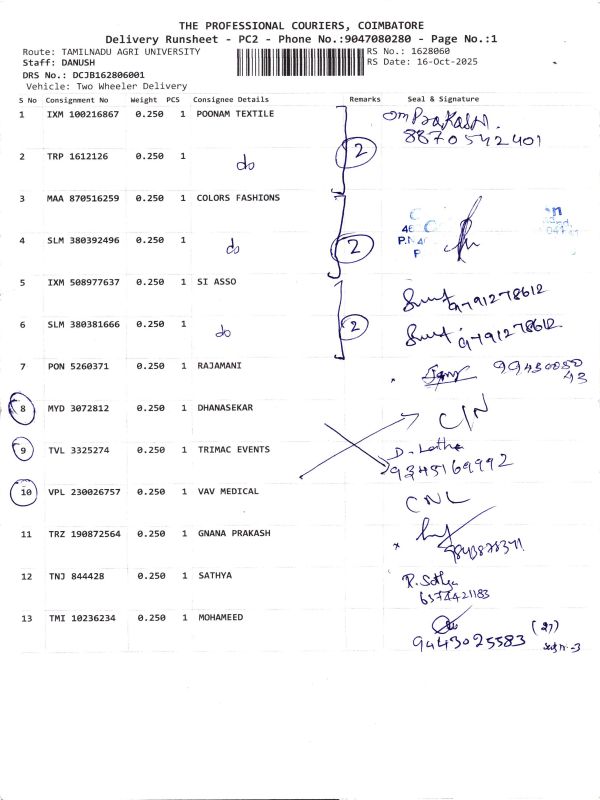 THE PROFESSIONAL COURIERS, COIMBATORE
Delivery Runsheet - PC2 - Phone No.:9047080280 - Page No.:1
Route: TAMILNADU AGRI UNIVERSITY RS No.: 1628060
Staff: DANUSH RS Date: 16-Oct-2025
DRS No.: DCJB162806001
Vehicle: Two Wheeler Delivery
S No Consignment No Weight PCS Consignee Details Remarks Seal & Signature
1 IXM 100216867 0.250 1 POONAM TEXTILE Omprakash.
8870542401
2 TRP 1612126 0.250 1 do 2
3 MAA 870516259 0.250 1 COLORS FASHIONS
4 SLM 380392496 0.250 1 do 2
5 IXM 508977637 0.250 1 SI ASSO 9791278612
6 SLM 380381666 0.250 1 do 2 9791278612
7 PON 5260371 0.250 1 RAJAMANI 99430050
43
8 MYD 3072812 0.250 1 DHANASEKAR C/N
9 TVL 3325274 0.250 1 TRIMAC EVENTS D. Latha
9345169992
10 VPL 230026757 0.250 1 VAV MEDICAL CNL
11 TRZ 190872564 0.250 1 GNANA PRAKASH
12 TNJ 844428 0.250 1 SATHYA R. Sathya
6374421183
13 TMI 10236234 0.250 1 MOHAMEED
9443025583 (27)